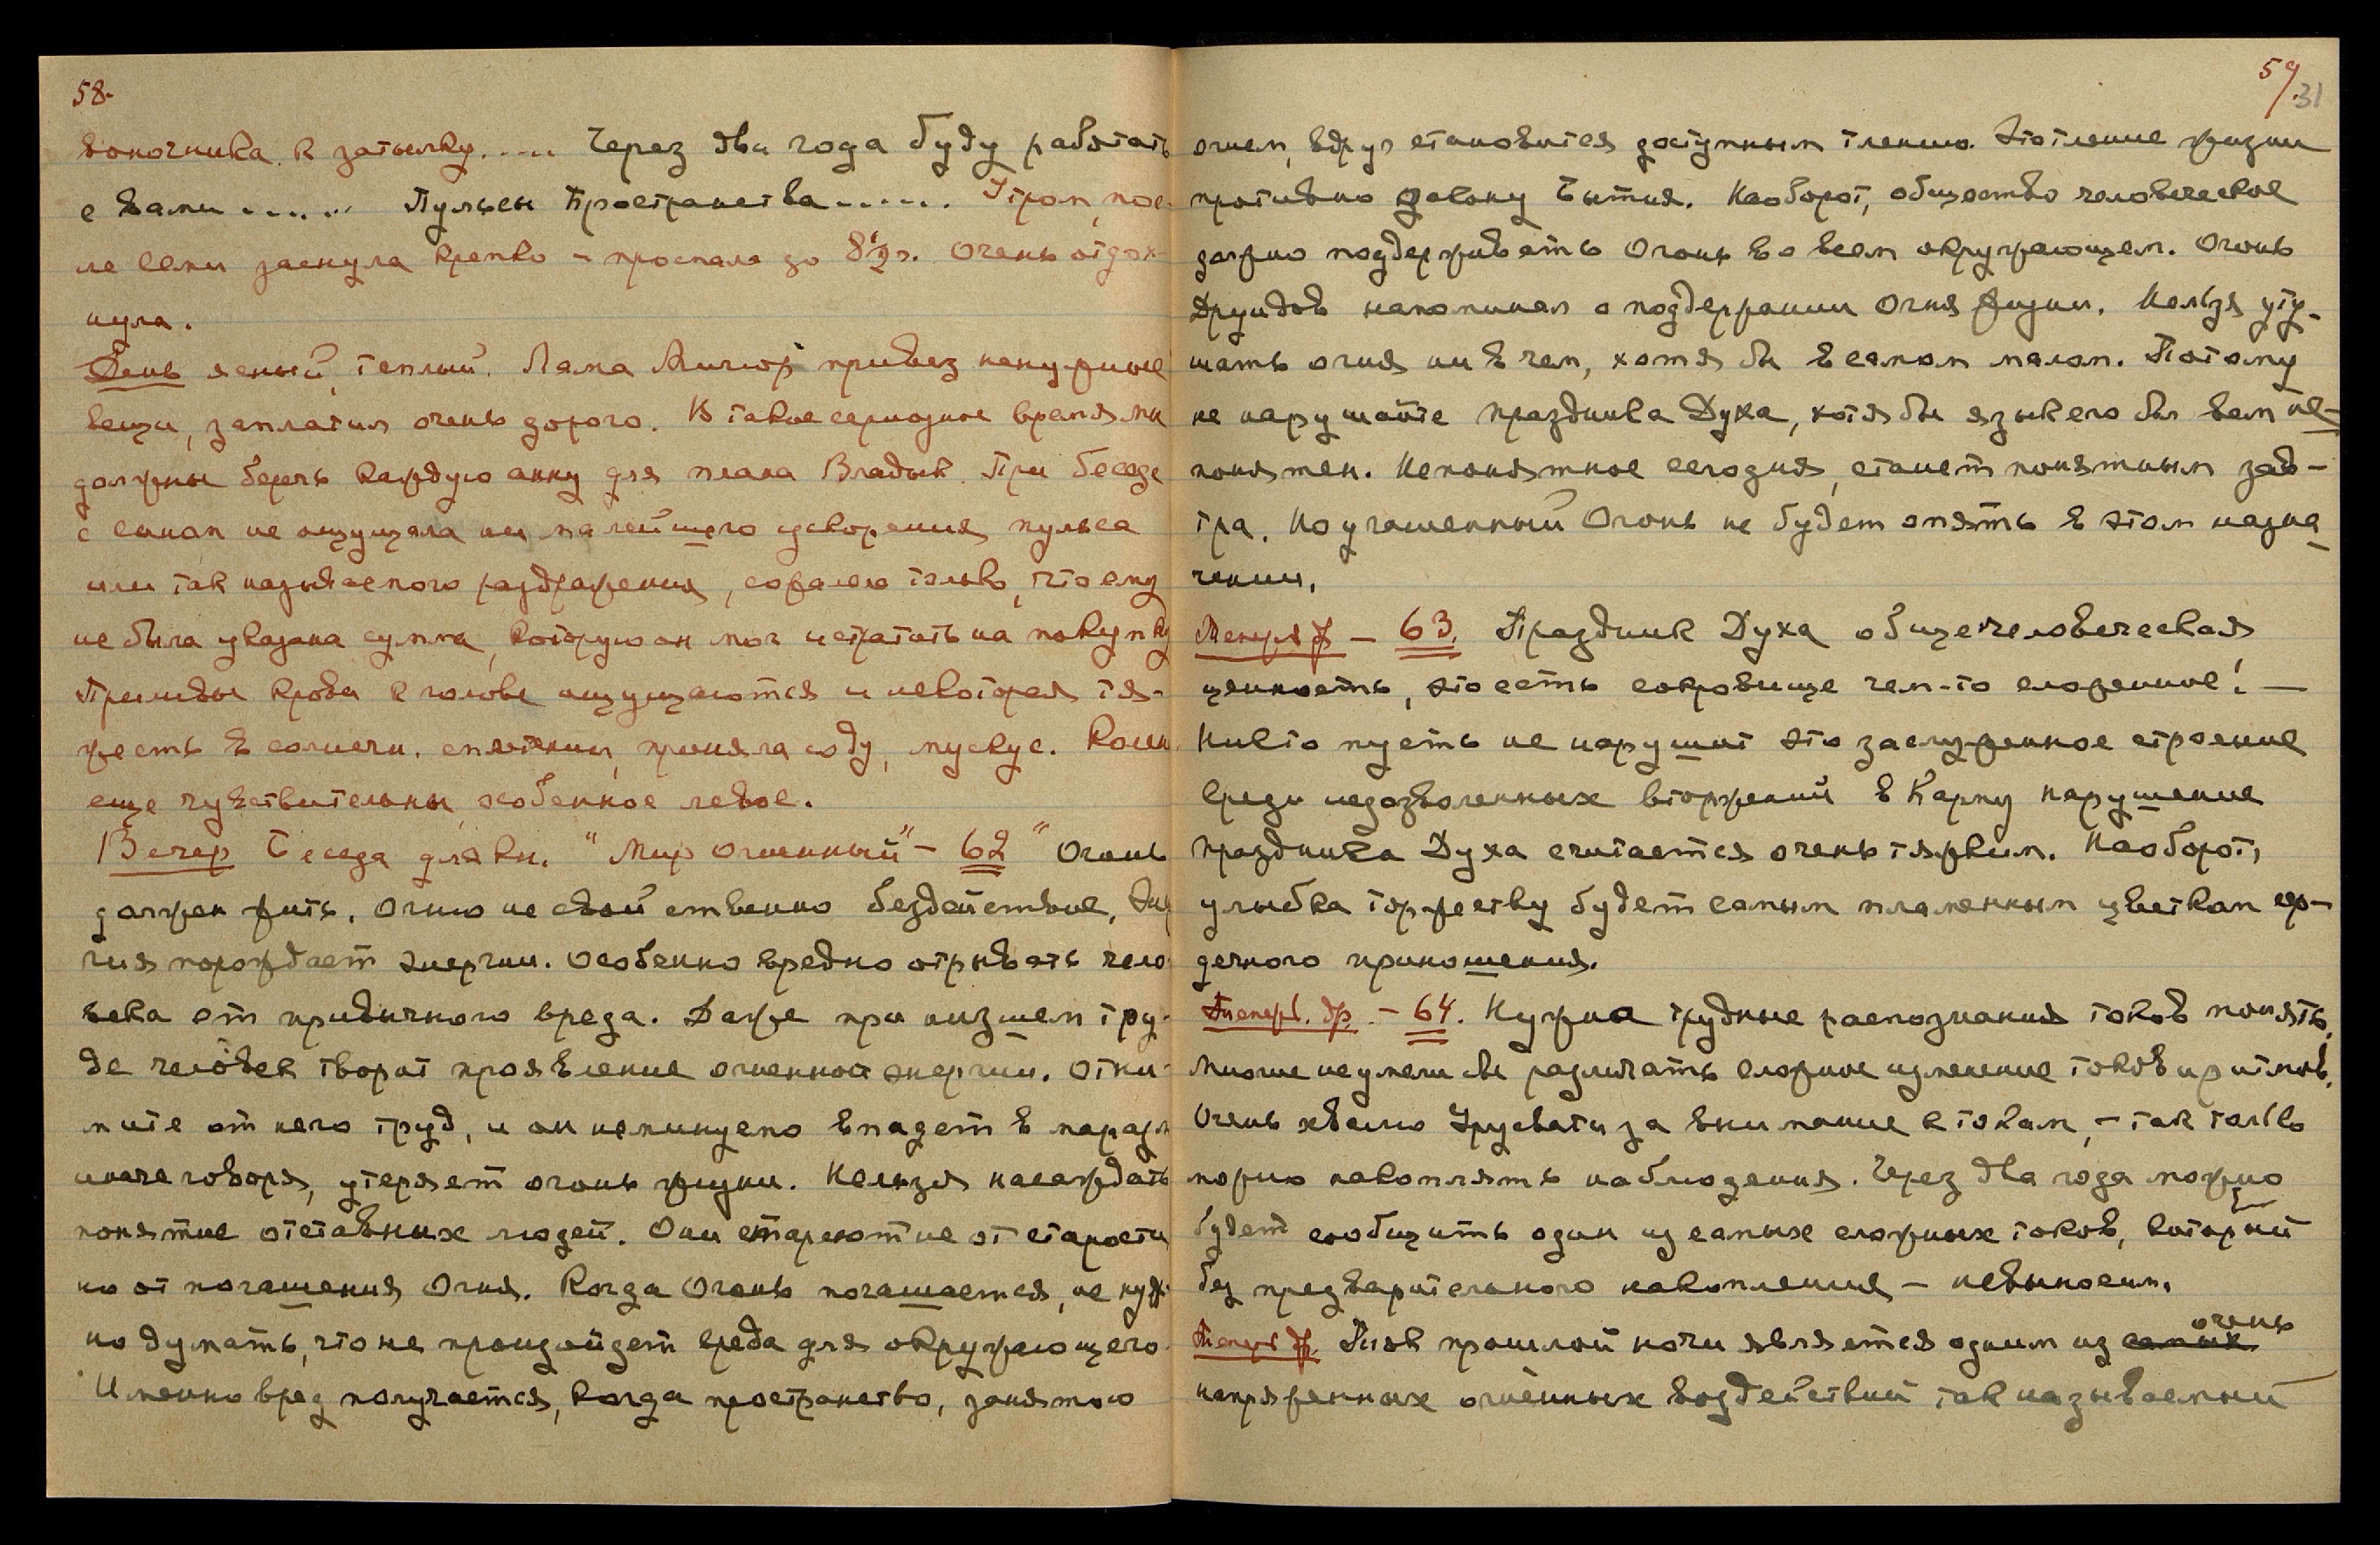 58.
воночника к затылку..... Через два года буду работать
с вами...... Пульсы Пространства...... Утром, пос-
ле семи заснула крепко - проспала до 8½ ч. Очень отдох-
нула.
День ясный, теплый. Лама Мингюр привез ненужные
вещи, заплатил очень дорого. В такое серьозное время мы
должны беречь каждую анну для плана Владык. При беседе
с сыном не ощущала ни малейшего ускорения пульса
или так называемого раздражения, сожалею только, что ему
не была указана сумма, которую он мог истратить на покупку
Приливы крови к голове ощущаются и некоторая тя-
жесть в солнечн. сплетении, приняла соду, мускус.
еще чувствительны, особенное левое.
Вечер Беседа для кн. "Мир Огненный" - 62 "Огонь
должен жить. Огню не свойственно бездействие. Энер
гия порождает энергии. Особенно вредно отрывать чело
века от привычного вреда. Даже при низшем тру-
де человек творит проявление огненной энергии. Отни-
мите от него труд, и он неминуемо впадет в маразм
иначе говоря, утеряет огонь жизни. Нельзя насаждать
понятие отставных людей. Они стареют не от старости
но от погашения Огня. Когда Огонь погашается, не нуж-
но думать, что не произойдет вреда для окружающего.
Именно вред получается, когда пространство, занятою
59/31
огнем, вдруг становится доступным тлению. Это тление жизни
противно закону Бытия. Наоборот, общество человеческое
должно поддерживать Огонь во всем окружающем. Огонь
Друидов напоминал о поддержании Огня жизни. Нельзя уту-
шать огня ни в чем, хотя бы в самом малом. Потому
не нарушайте праздника Духа, хотя бы язык его был вам не-
понятен. Непонятное сегодня, станет понятным зав-
тра. Но угашенный Огонь не будет опять в этом назна-
чении.
63. Праздник Духа общечеловеческая
ценность, это есть сокровище чем-то сложенное! —
Никто пусть не нарушит это заслуженное строение
Среди недозволенных вторжений в Карму нарушение
праздника Духа считается очень тяжким. Наоборот,
улыбка торжеству будет самым пламенным цветком сер-
дечного приношения.
64. Нужна трудные распознания токов понять.
Многие не умели бы различать сложное изменение токов и ритмов.
Очень хвалю Урусвати за внимание к токам, - так только
можно накоплять наблюдения. Через два года можно
будет сообщить один из самых сложных токов, который
без предварительного накопления - невыносим.
Знак прошлой ночи является одним из самых очень
напряженных огненных воздействий так называемый